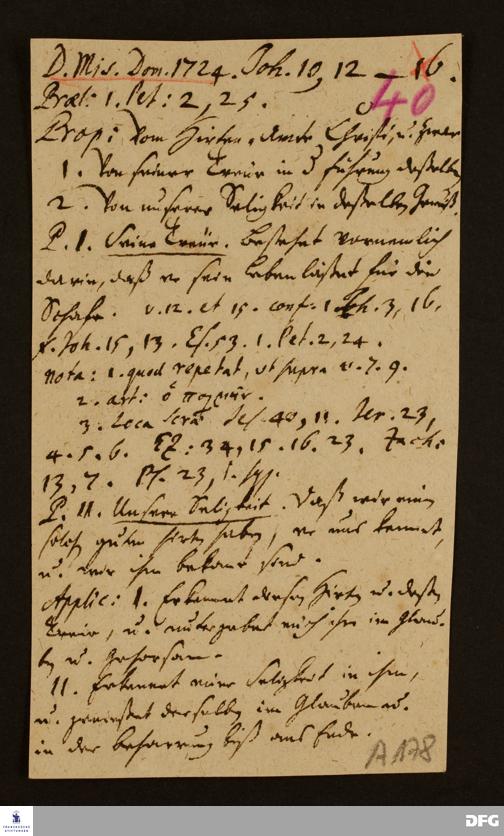 D. Mis. Dom. 1724. Joh. 10, 12 – 16.
40
Præl: 1. Pet: 2, 25.
Prop: Vom Hirten-Amte Christi, u. zwar
1. Von seiner Treue in d. führung desselben
2. Von unserer Seligkeit in desselben Genuß.
P. I. Seine Treue. bestehet vornemlich
darin, daß er sein leben lässet für die
Schafe. v. 12. et 15. conf. 1 Joh. 3, 16.
Joh. 15, 13. Es. 53. 1. Pet. 2, 24.
Nota: 1. quod repetat, ut supra v. 7. 9.
2. art: ὁ ποιμήν.
3. Loca Scræ Jes. 40, 11. Jer. 23,
4. 5. 6. Ez: 34, 15. 16. 23. Zach:
13, 7. Ps. 23, 1. sqq.
P. II. Unsere Seligkeit. Daß wir einen
solch guten Hirten haben, er uns kennet,
u. wir ihm bekant sind.
Applic: I. Erkennet diesen Hirten u. dessen
Treue, u. untergebet euch ihm im Glau-
ben u. Gehorsam.
II. Erkennet eure Seligkeit in ihm,
u. geniesset derselben im Glauben u.
in der beharrung biß ans Ende.
A 178
FRANCKESCHE STIFTUNGEN
DFG